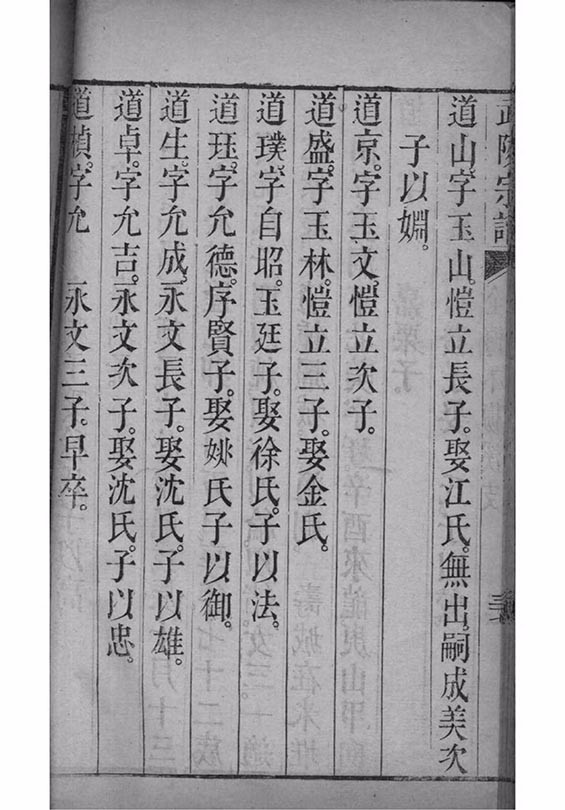 武陵宗譜
道山。字玉山。愷立長子。娶江氏。無出。嗣成美次
子以嫺。
道京。字玉文。愷立次子。
道盛。字玉林。愷立三子。娶金氏。
道璞。字自昭。玉廷子。娶徐氏。子以法。
道珏。字允德。序賢子。娶姚氏子以御。
道生。字允成。永文長子。娶沈氏。子以雄。
道卓。字允吉。永文次子。娶沈氏。子以忠。
道楨。字允 永文三子。早卒。